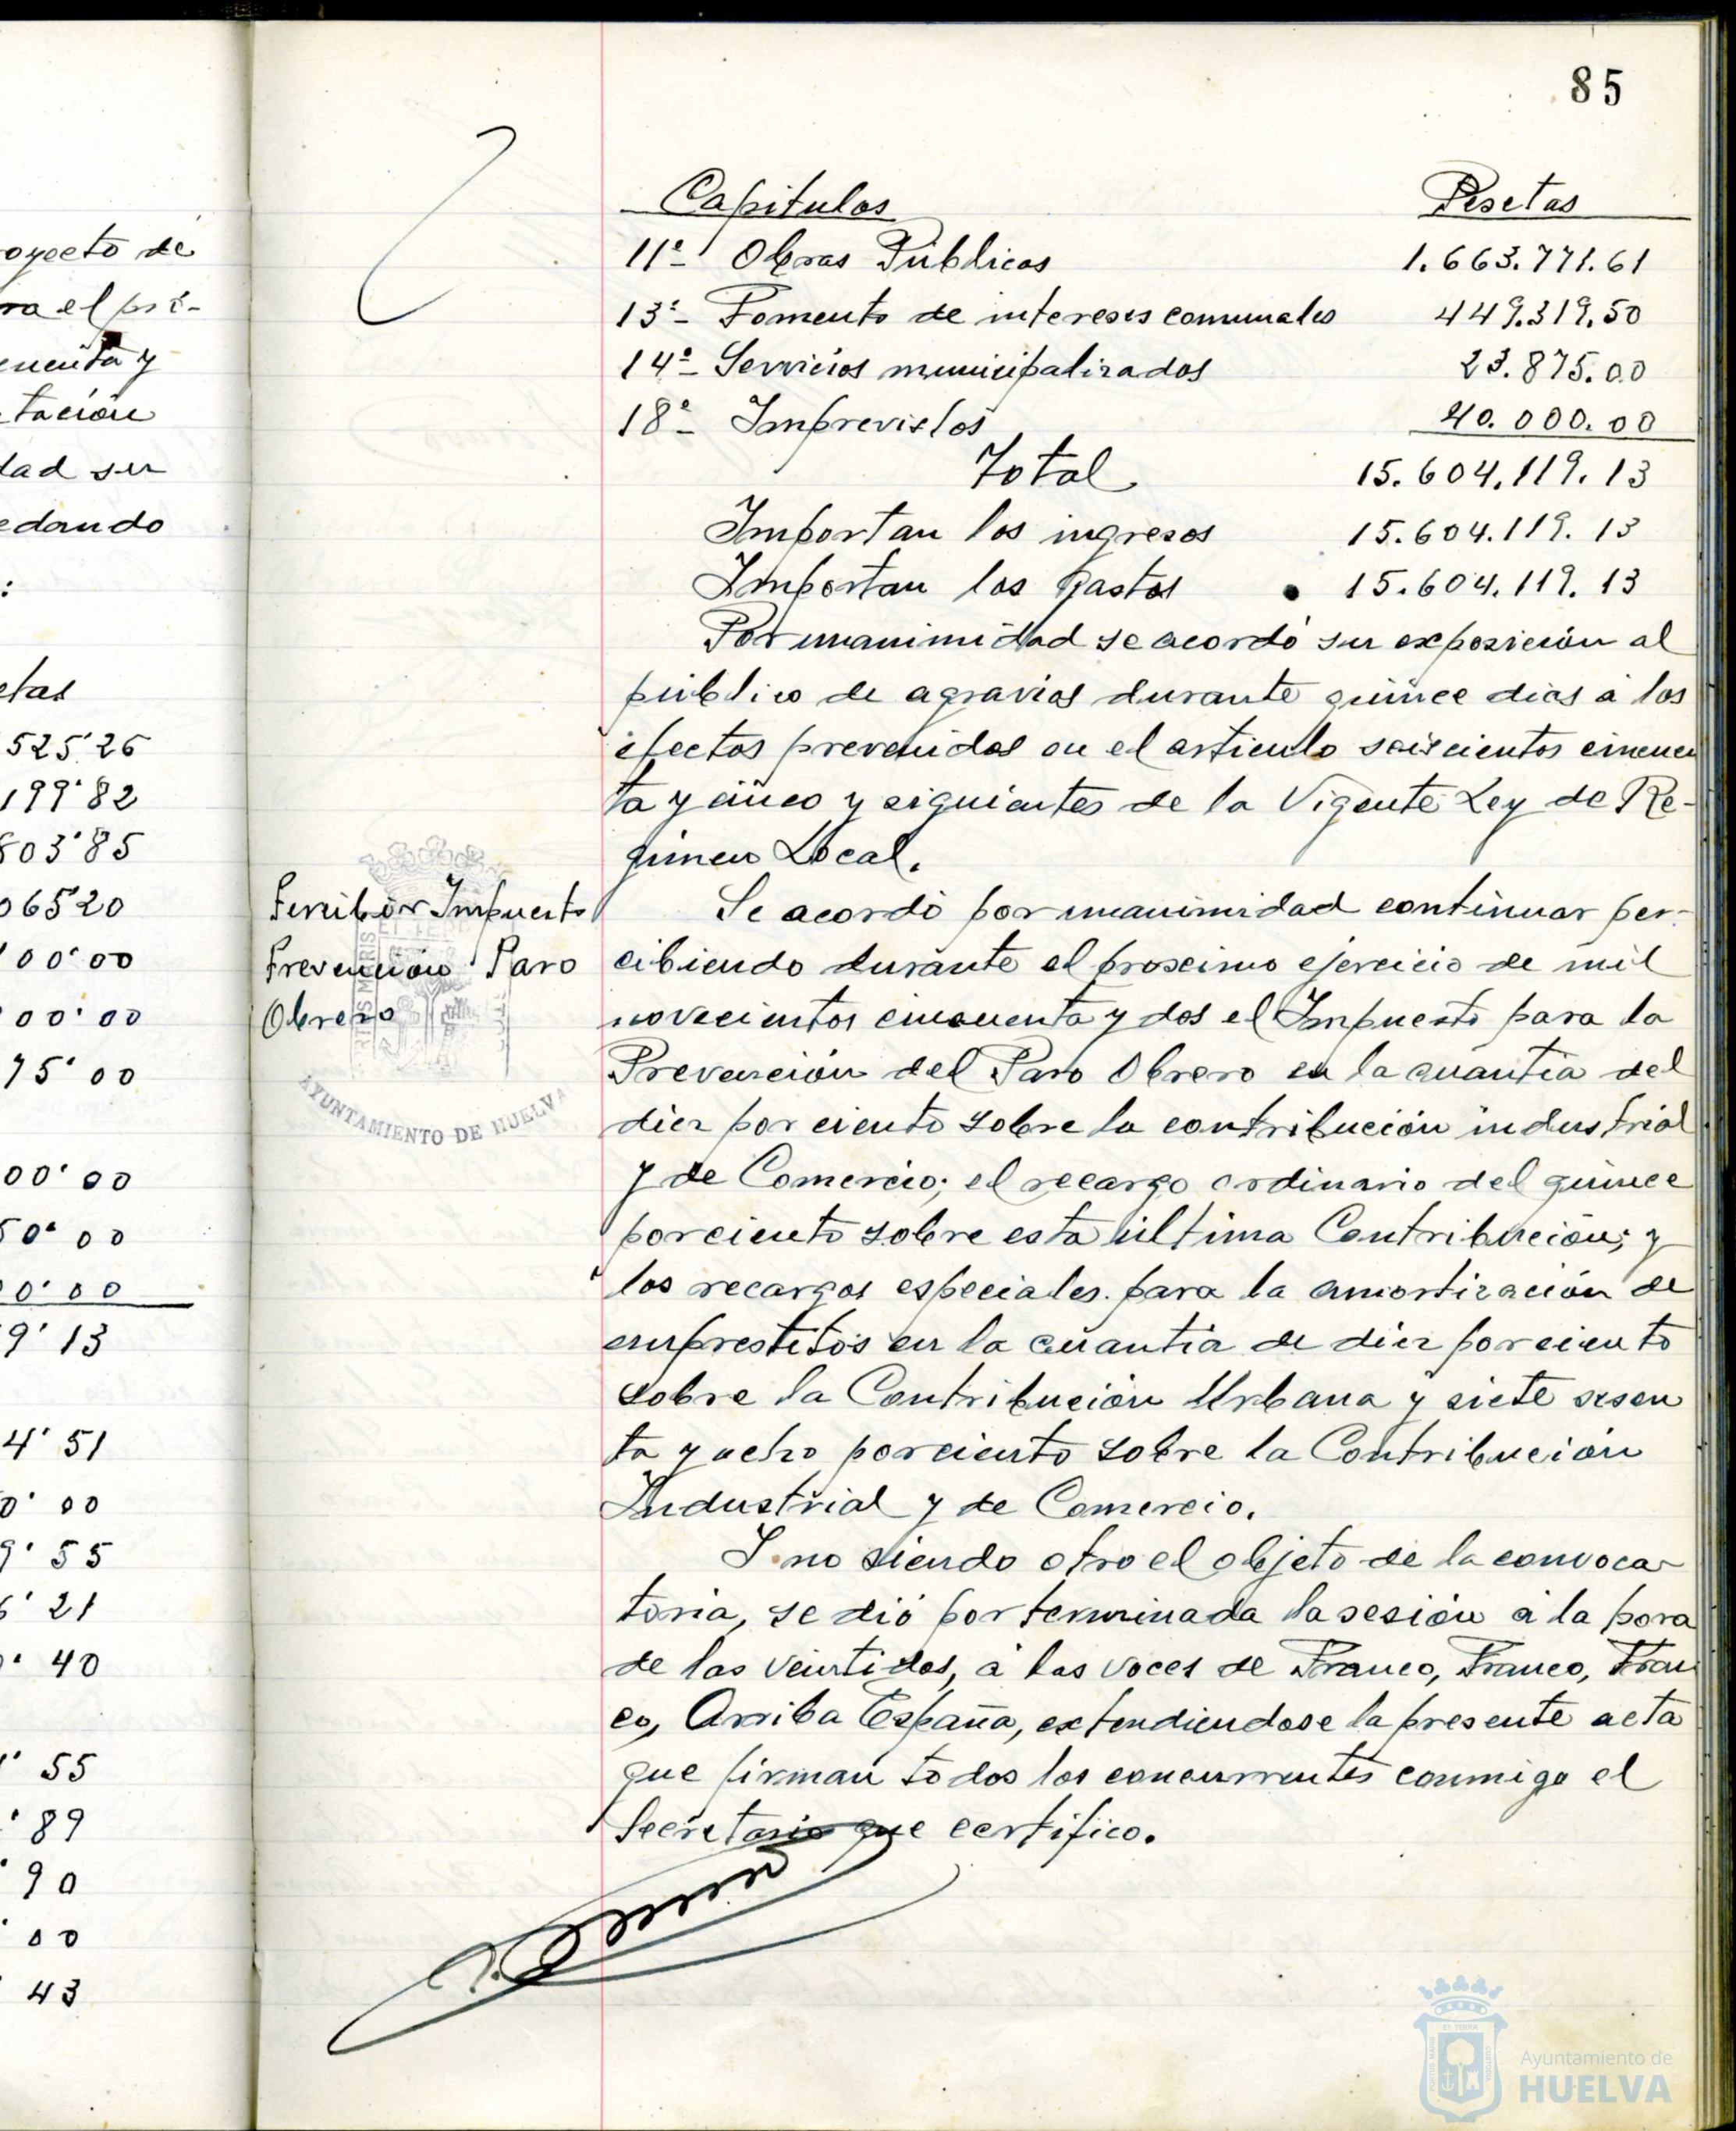 oyecto de
ra el pri-
cuenta y
tación
dad su
edando
:
etas
525'26
199'82
803'85
065'20
100'00
00'00
75'00
00'00
50'00
00'00
9'13
4'51
0'00
9'55
6'21
0'40
1'55
'89
'90
'00
'43
85
Capitulos Pesetas
11º- Obras Públicas 1.663.771.61
13º- Fomento de intereses comunales 449.319,50
14º- Servicios municipalizados 23.875.00
18º- Imprevistos 40.000.00
Total 15.604.119.13
Importan los ingresos 15.604.119.13
Importan los gastos 15.604.119.13
Por unanimidad se acordó su exposición al
público de agravios durante quince dias á los
efectos prevenidos en el artículo seiscientos cincuen
ta y cinco y siguientes de la Vigente Ley de Re-
gimen Local.
Impuesto
Prevención Paro
Obrero
Se acordó por unanimidad continuar per-
cibiendo durante el proximo ejercicio de mil
novecientos cincuenta y dos el Impuesto para la
Prevención del Paro Obrero en la cuantía del
diez por ciento sobre la contribución industrial
y de Comercio; el recargo ordinario del quince
porciento sobre esta última Contribución; y
los recargos especiales para la amortización de
emprestitos en la cuantia de diez porciento
sobre la Contribución Urbana y siete sesen
ta y ocho porciento sobre la Contribución
Industrial y de Comercio.
Y no siendo otro el objeto de la convoca-
toria, se dió por terminada la sesión á la hora
de las veintidos, á las voces de Franco, Franco, Fran
co, Arriba España, extendiendose la presente acta
que firman todos los concurrentes conmigo el
Secretario que certifico.
AYUNTAMIENTO DE HUELVA
Ayuntamiento de
HUELVA